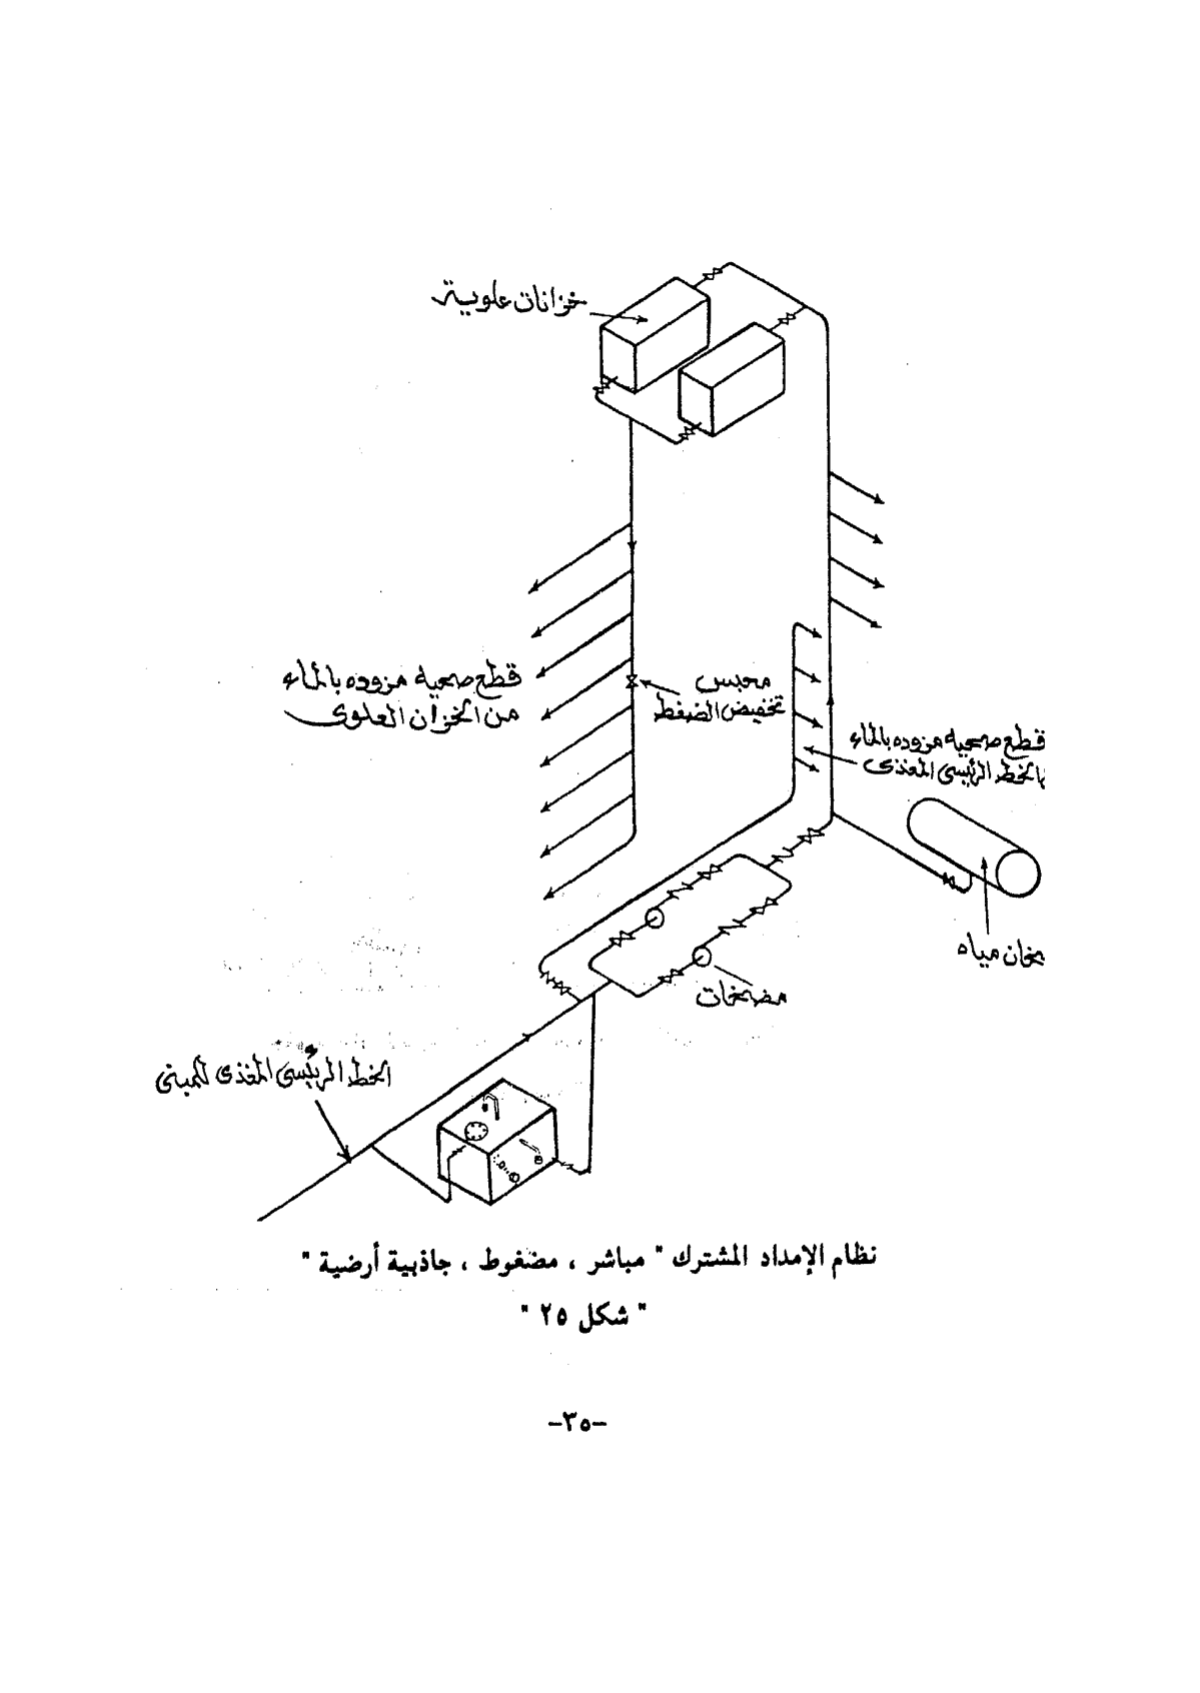 خزانات علوية
قطع صحيه مزوده بالماء
من الخزان العلوى
محبس
تخفيض الضغط
قطع صحيه مزوده بالماء
بالخط الرئيسى المغذى
سخان مياه
مضخات
الخط الرئيسى المغذى للمبنى
نظام الإمداد المشترك " مباشر ، مضغوط ، جاذبية أرضية "
" شكل ٢٥ "
-٣٥-